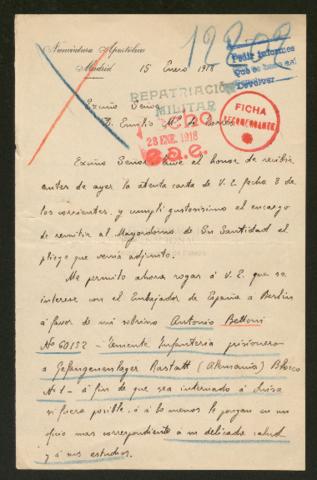 Nunciatura Apostólica
Madrid 15 Enero 1918
Pedir informes
Devolver
REPATRIACIÓN
MILITAR
28 ENE. 1918
FICHA
Excmo Señor
D. Emilio Mª de Torres
Excmo Señor: Tuve el honor de recibir
antes de ayer la atenta carta de V. E. fecha 8 de
los corrientes, y cumplí gustosisimo el encargo
de remitir al Mayordomo de Su Santidad el
pliego que venía adjunto.
Me permito ahora rogar á V. E. que se
interese con el Embajador de España a Berlín
á favor de mi sobrino Antonio Bettoni
Nº 60152 - Teniente Infantería prisionero
a Gefangenenlager Rastatt (Alemania) Bloco
Nº 1 - á fin de que sea internado á Suiza
si fuera posible, ó á lo menos le pongan en un
sitio mas correspondiente á su delicada salud
y á sus estudios.